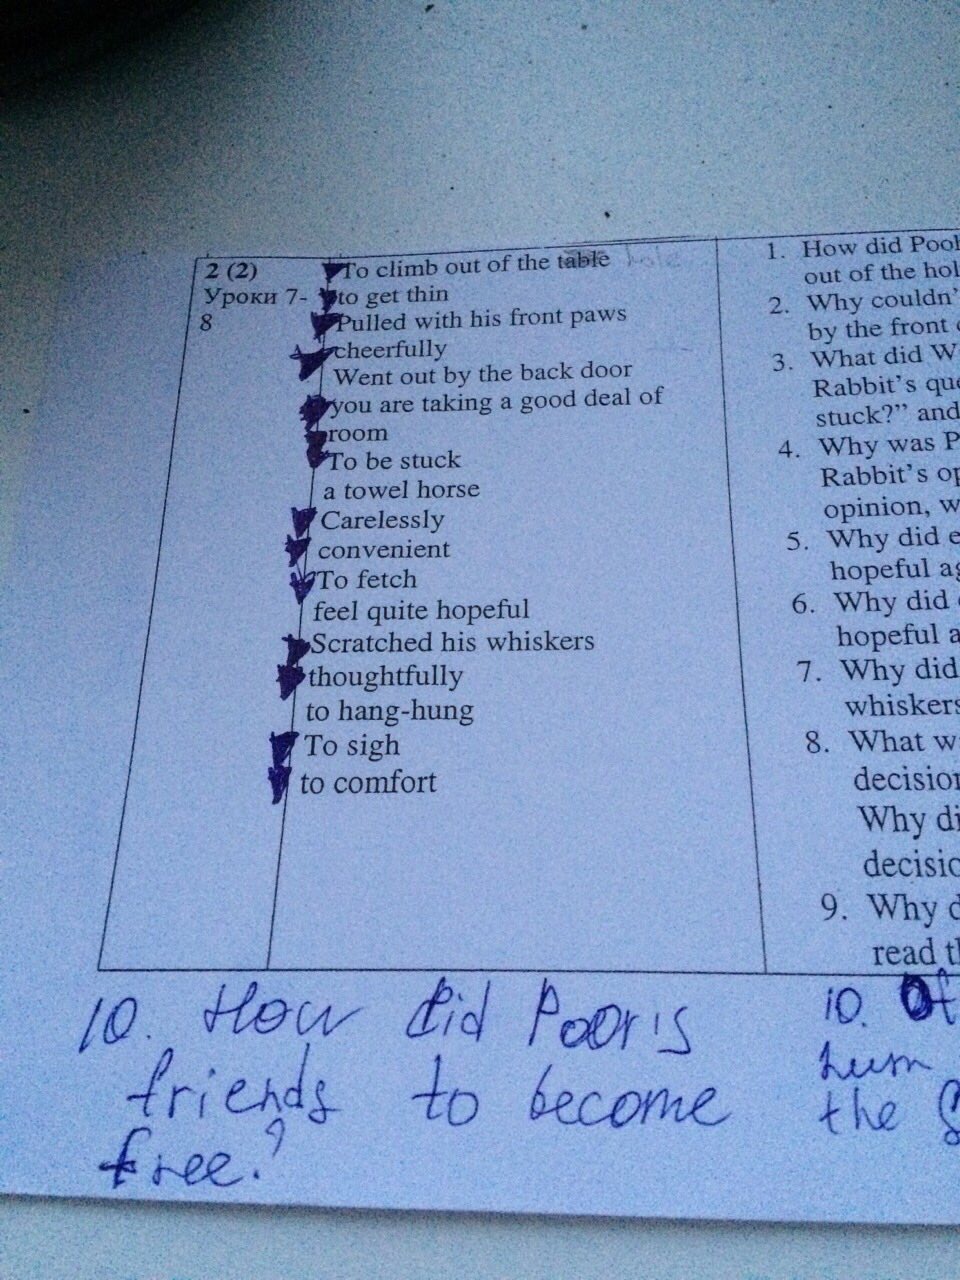 2 (2)
Уроки 7-
8
To climb out of the table hole
to get thin
Pulled with his front paws
cheerfully
Went out by the back door
you are taking a good deal of
room
To be stuck
a towel horse
Carelessly
convenient
To fetch
feel quite hopeful
Scratched his whiskers
thoughtfully
to hang-hung
To sigh
to comfort
1. How did Pooh
out of the hol
2. Why couldn'
by the front
3. What did W
Rabbit's que
stuck?" and
4. Why was P
Rabbit's op
opinion, w
5. Why did e
hopeful ag
6. Why did
hopeful a
7. Why did
whiskers
8. What w
decision
Why di
decisio
9. Why d
read th
10. How did Poor's
friends to become
free?
10. Of
hum
the S